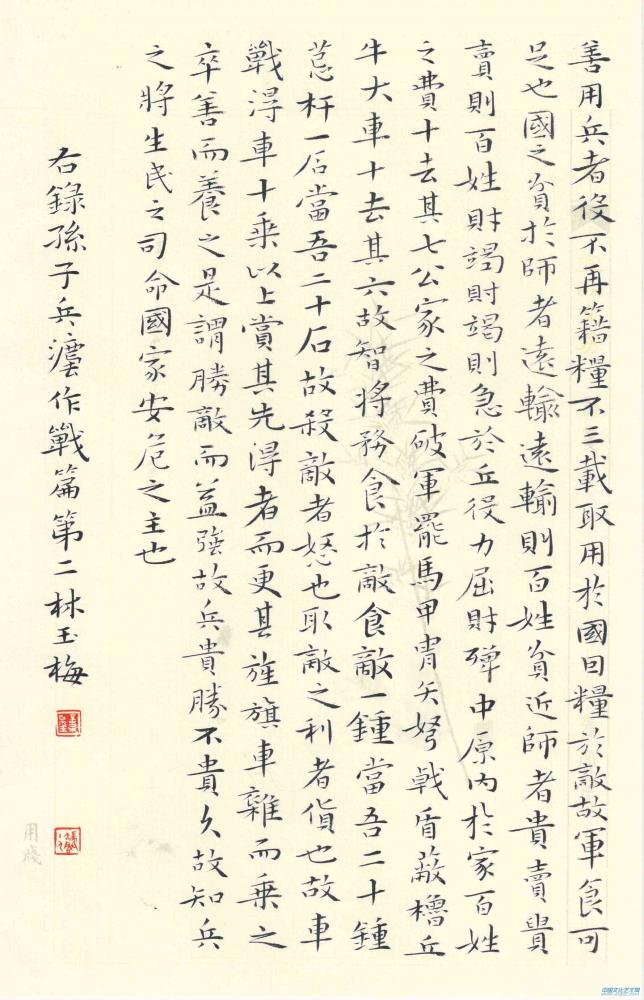 善用兵者役不再籍糧不三載取用於國因糧於敵故軍食可
足也國之貧於師者遠輸遠輸則百姓貧近師者貴賣貴
賣則百姓財竭財竭則急於丘役力屈財殫中原内於家百姓
之費十去其七公家之費破軍罷馬甲胄矢弩戟盾蔽櫓丘
牛大車十去其六故智將務食於敵食敵一鍾當吾二十鍾
萁杆一石當吾二十石故殺敵者怒也取敵之利者貨也故車
戰得車十乘以上賞其先得者而更其旌旗車雜而乘之
卒善而養之是謂勝敵而益強故兵貴勝不貴久故知兵
之將生民之司命國家安危之主也
右錄孫子兵灋作戰篇第二林玉梅
用箋
中国文化艺术网